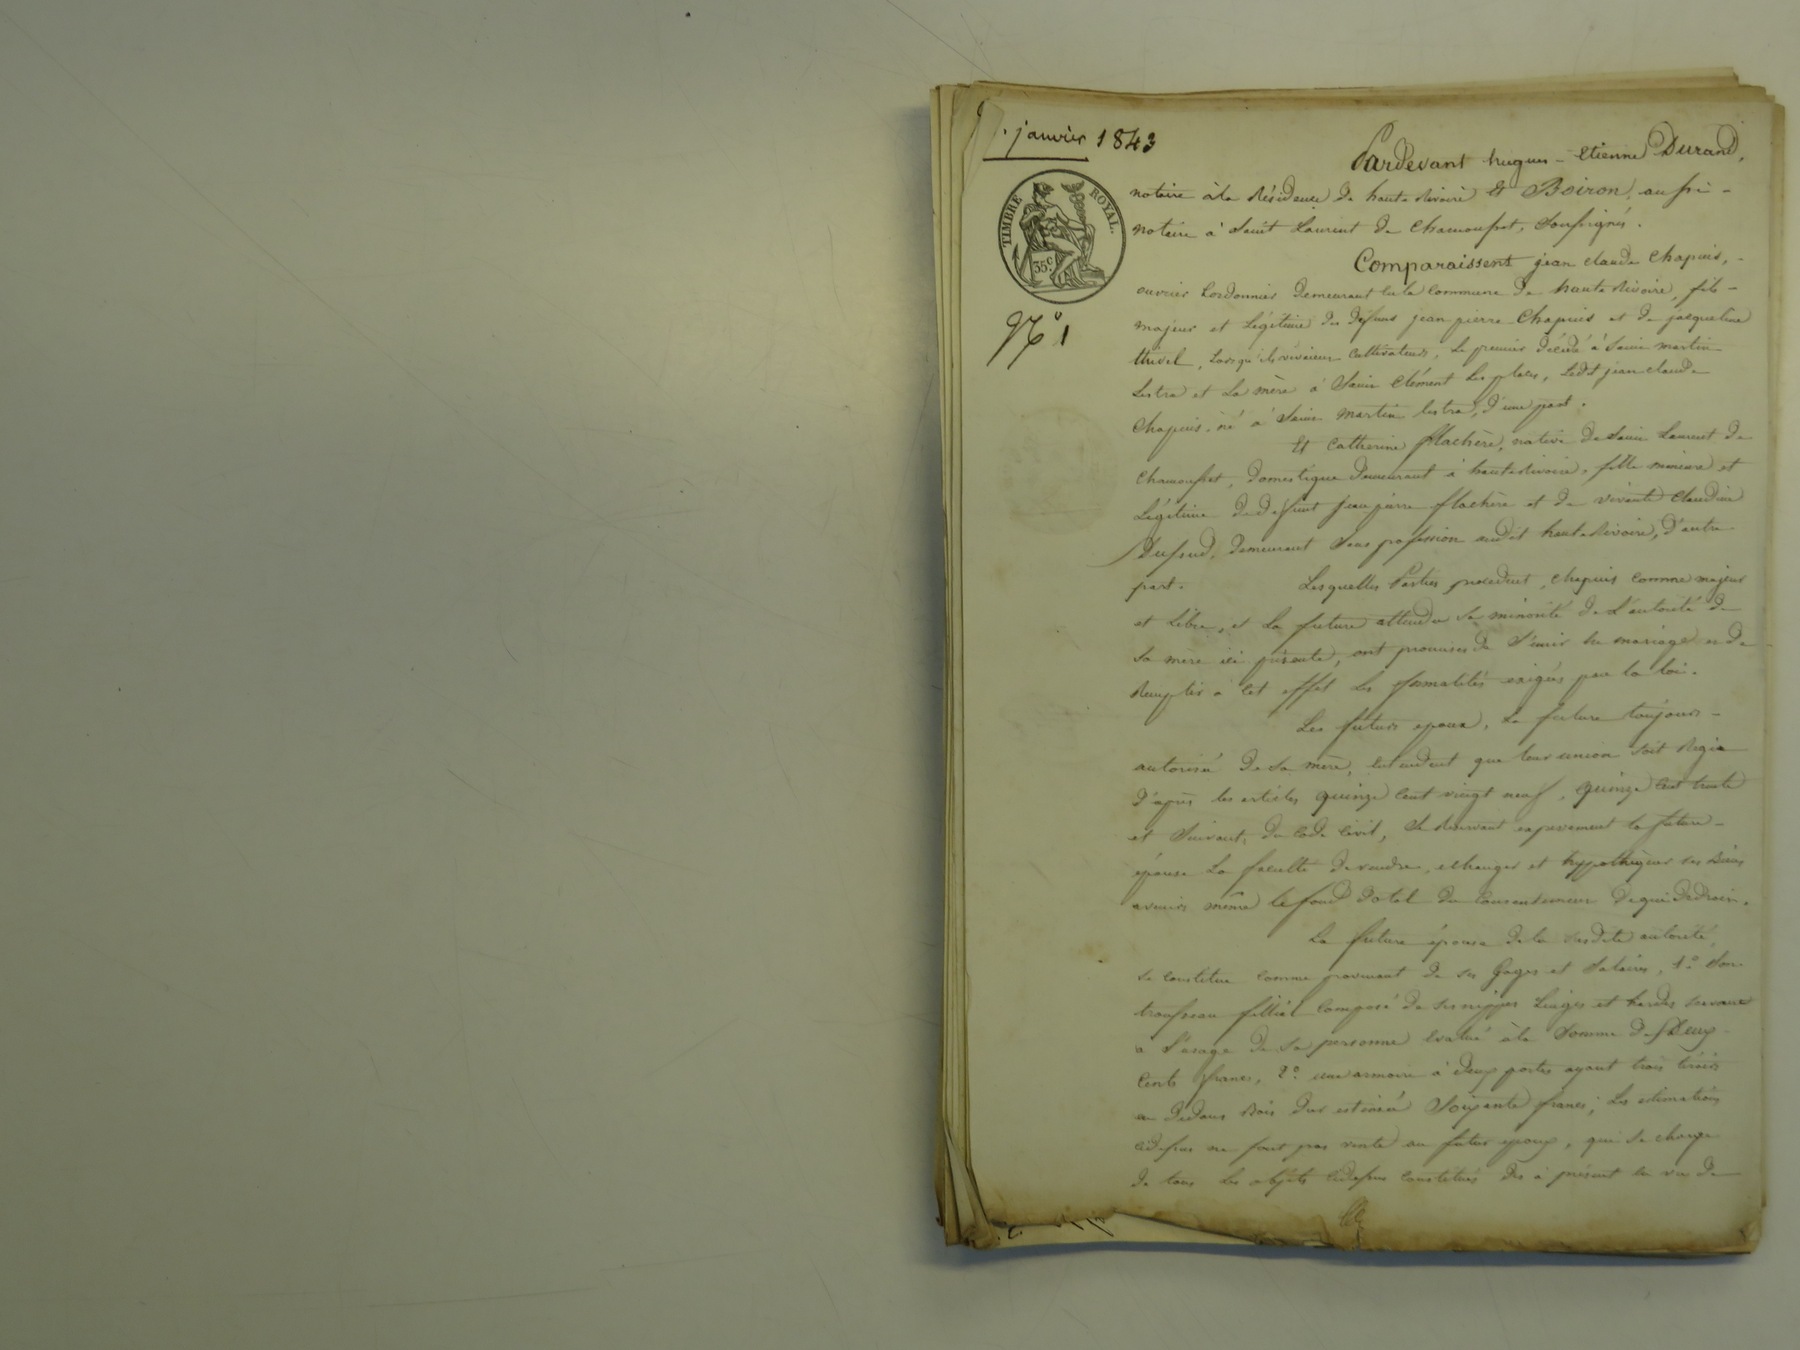 janvier 1843
TIMBRE ROYAL.
35c.
N° 1
Pardevant hugues-Etienne Durand,
notaire à la Résidence de haute Rivoire et Boiron, aussi-
notaire à Saint Laurent de Chamousset, soussignés.
Comparaissent jean claude Chapuis,-
ouvrier Cordonnier demeurant en la Commune de haute Rivoire, fils-
majeur et Légitime des defunts jean pierre Chapuis et de jacqueline
thivel, Lorsqu'ils vivaient Cultivateurs, le premier décédé à Saint martin
Lestra et La mère à Saint Clément les places, Ledit jean claude
Chapuis, né à Saint Martin lestra, d'une part.
Et Catherine flachère, native de Saint Laurent de
Chamousset, domestique demeurant à haute Rivoire, fille mineure et
Légitime de defunt jean pierre flachère et de vivante claudine
demeurant sans profession audit haute Rivoire, d'autre
part. Lesquelles Parties procedent, Chapuis comme majeur
et Libre, et La future attendu sa minorité de L'autorité de
Sa mère ici présente, ont promis de S'unir en mariage et de
Remplir à cet effet Les formalités exigées par la loi.
Les futurs epoux, La future toujours-
autorisée de Sa mère, entendent que leur union soit Régie
d'après les articles quinze cent vingt neuf, quinze cent trente
et Suivants du Code Civil, Se Réservant expressement la future-
épouse La faculté de vendre, echanger et hypothéquer ses Biens
avenirs même le fond dotal du Consentement de qui de droit.
La future épouse de la susdite autorité,
se constitue comme provenant de ses Gages et Salaires, 1.° Son
trousseau filliel Composé de ses nippes Linges et hardes servant
à l'usage de Sa personne évalué à la Somme de Deux-
Cents francs, 2.° une armoire à deux portes ayant trois tiroirs
au dedans Bois dur estimée Soixante francs; Les estimations
cidessus ne font pas vente au futur epoux, qui Se charge
de tous Les objets cidessus Constitués dès à présent en vue de